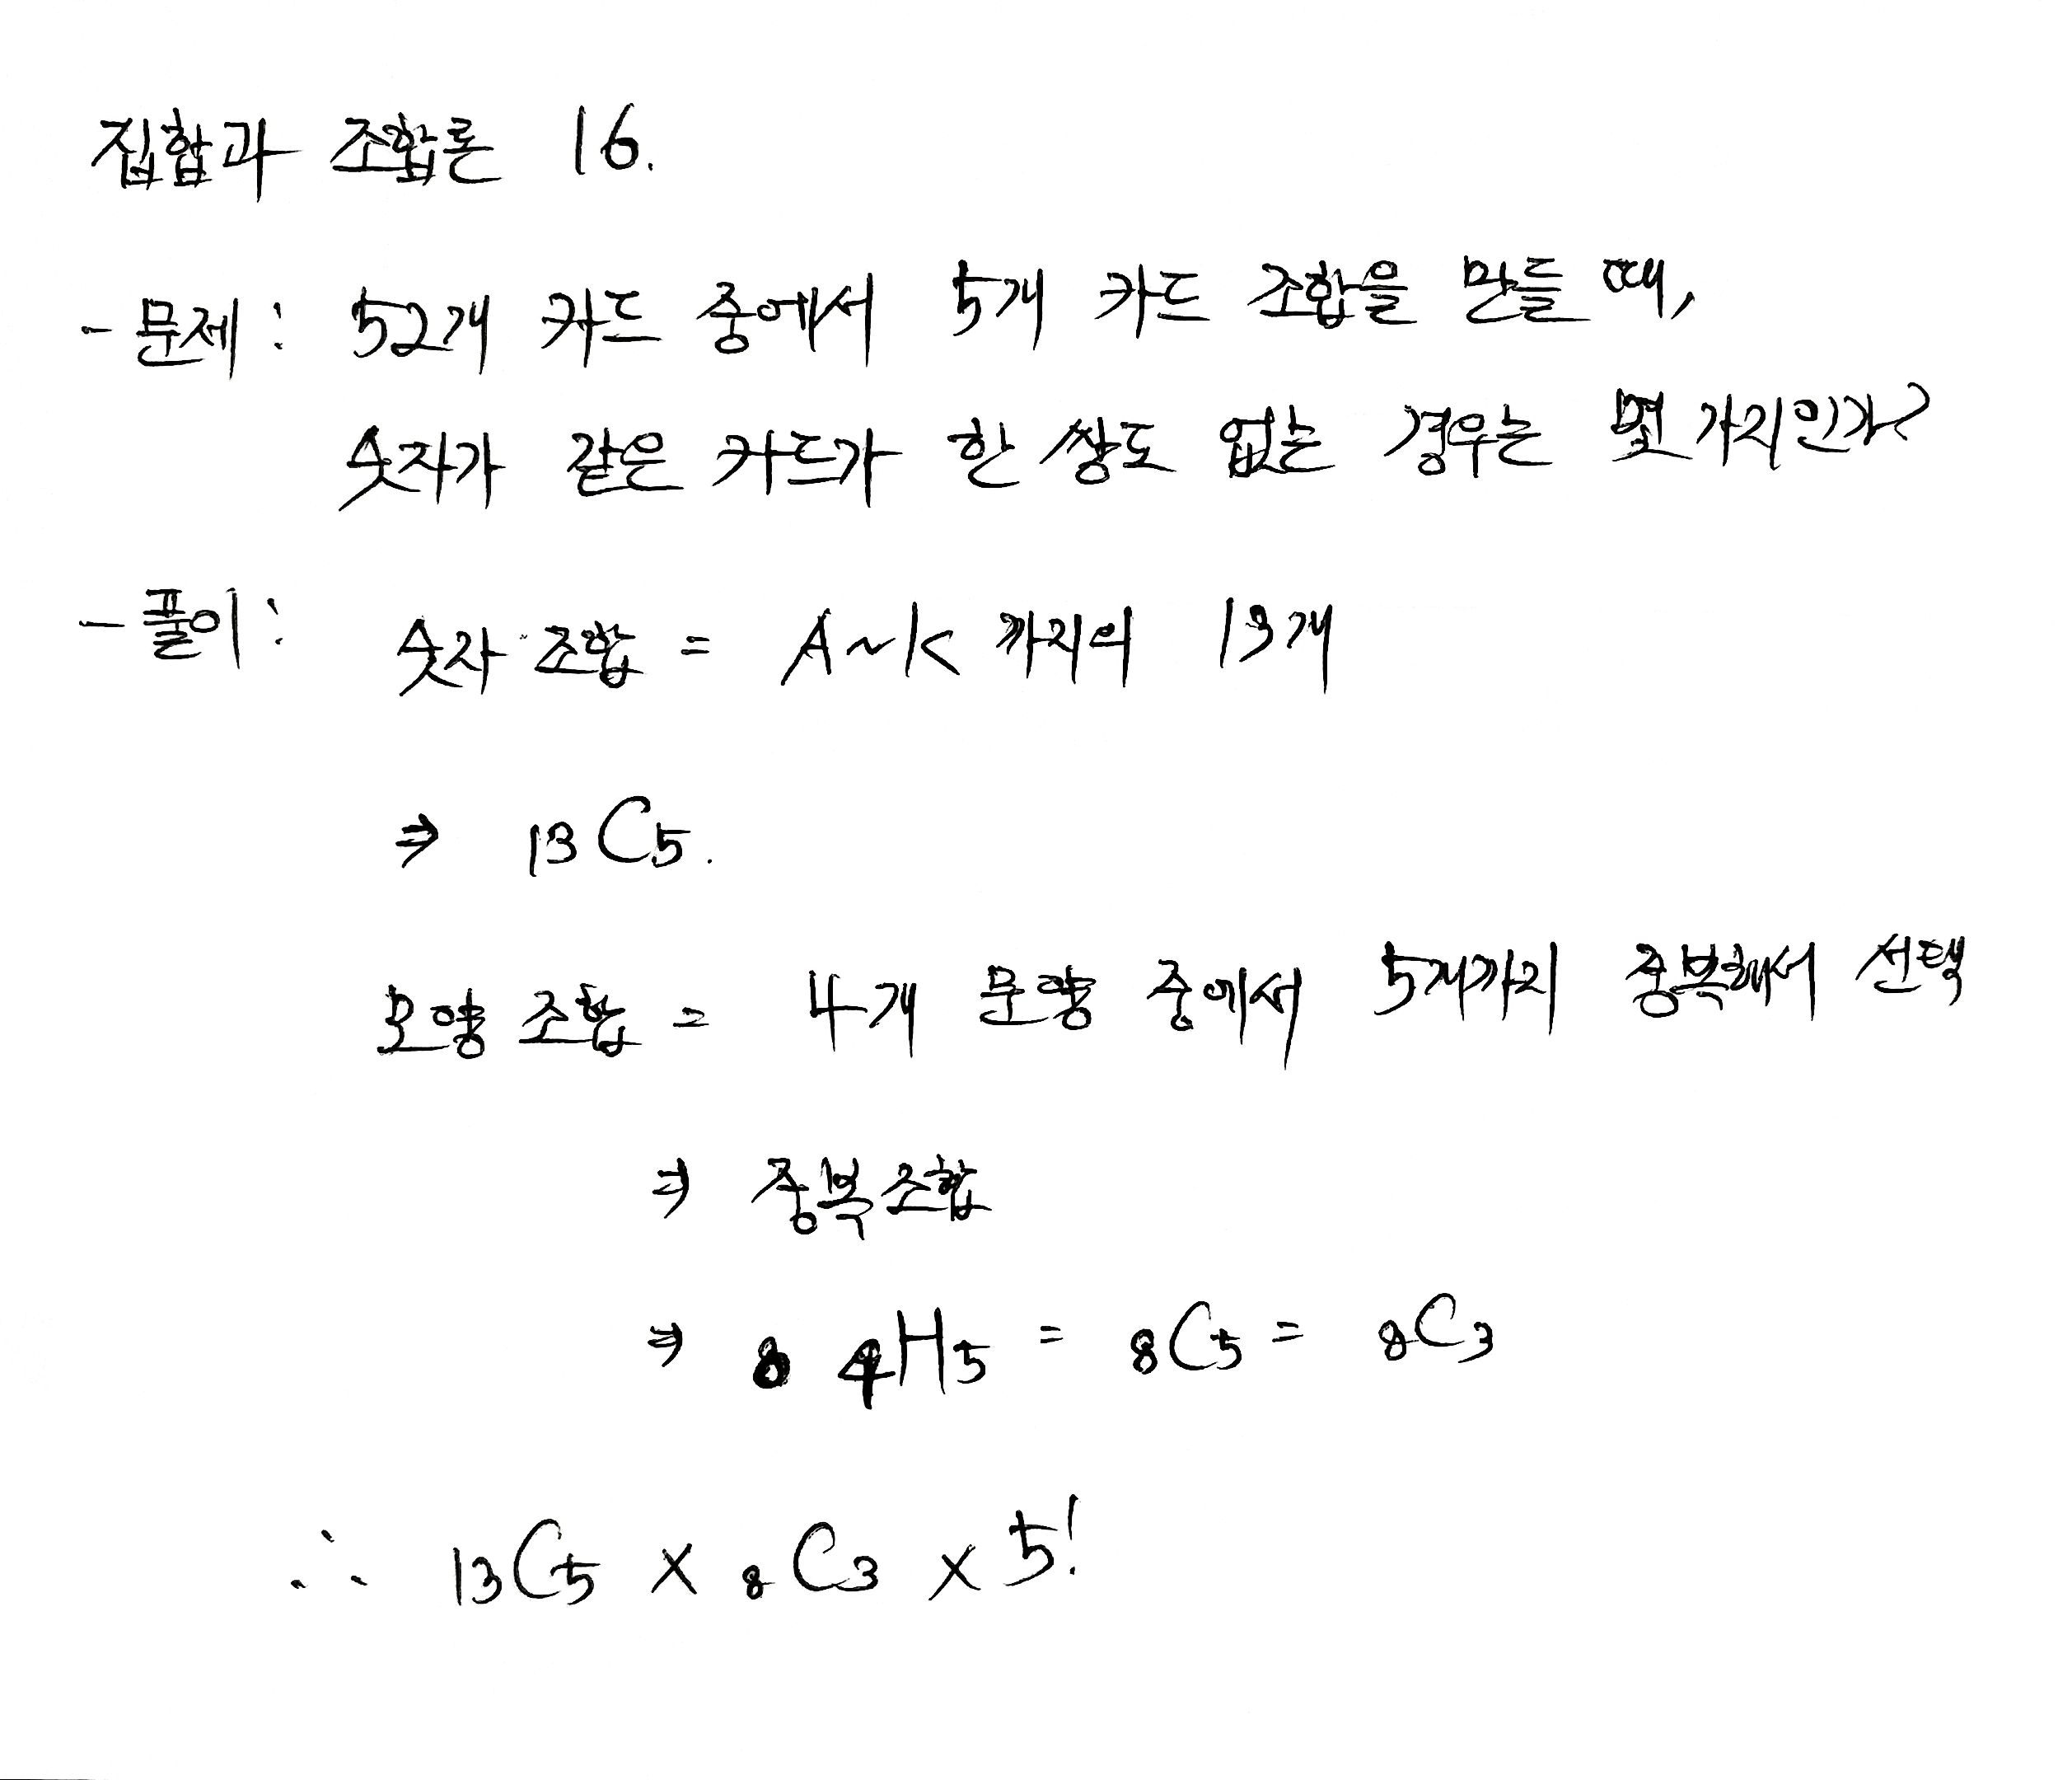 집합과 조합론 16.
- 문제: 52개 카드 중에서 5개 카드 조합을 만들 때,
숫자가 같은 카드가 한 쌍도 없는 경우는 몇 가지인가?
- 풀이: 숫자 조합 = A~K 까지의 13개
⇒ ₁₃C₅.
모양 조합 = 4개 문양 중에서 5개까지 중복해서 선택
⇒ 중복조합
⇒ 8 ₄H₅ = ₈C₅ = ₈C₃
∴ ₁₃C₅ × ₈C₃ × 5!